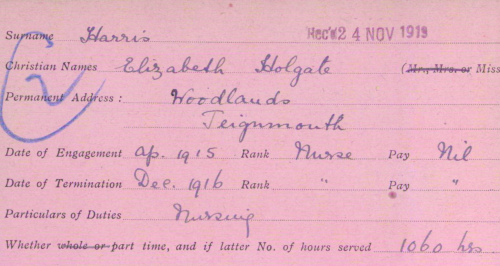 Surname Harris Rec'd 24 NOV 1919
Christian Names Elizabeth Holgate (Mr., Mrs. or Miss
Permanent Address : Woodlands
Teignmouth
Date of Engagement Ap. 1915 Rank Nurse Pay Nil
Date of Termination Dec. 1916 Rank " Pay "
Particulars of Duties Nursing
Whether whole or part time, and if latter No. of hours served 1060 hrs